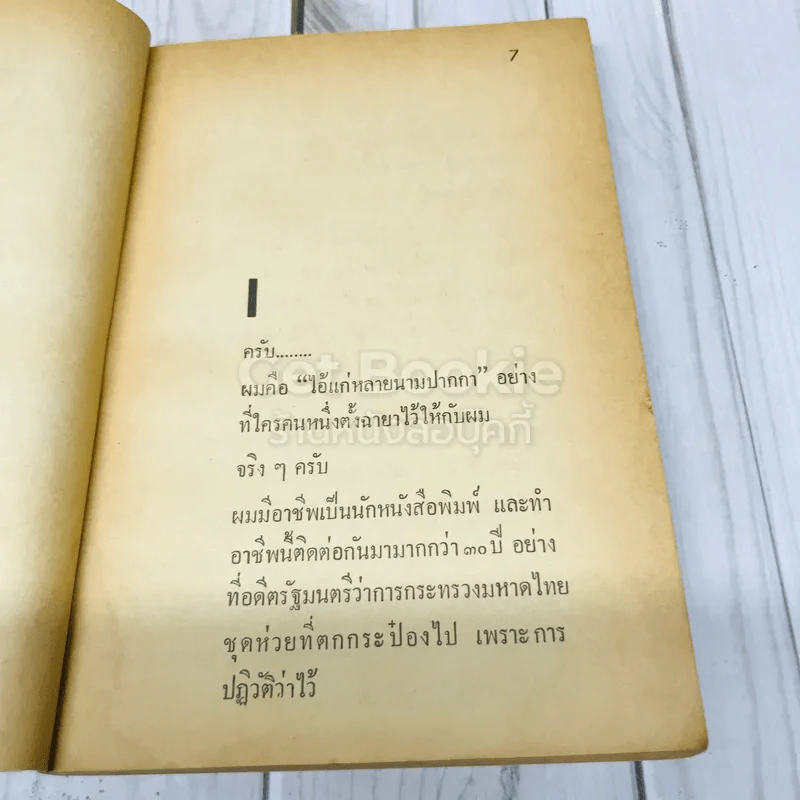 7
I
ครับ........
ผมคือ “ไอ้แก่หลายนามปากกา” อย่าง
ที่ใครคนหนึ่งตั้งฉายาไว้ให้กับผม
จริง ๆ ครับ
ผมมีอาชีพเป็นนักหนังสือพิมพ์ และทำ
อาชีพนี้ติดต่อกันมามากกว่า ๓๐ ปี อย่าง
ที่อดีตรัฐมนตรีว่าการกระทรวงมหาดไทย
ชุดห่วยที่ตกกระป๋องไป เพราะการ
ปฏิวัติว่าไว้
Get Bookie
ร้านหนังสือบุคกี้